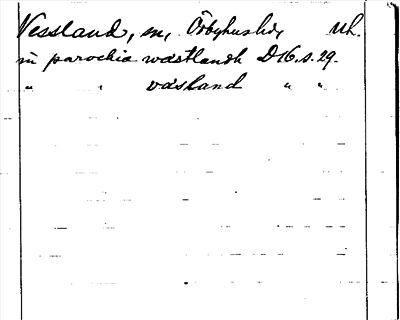 Vessland, sn, Örbyhus hd, Uh.
in parochia wästlandh D16.s.29.
" " väsland " "